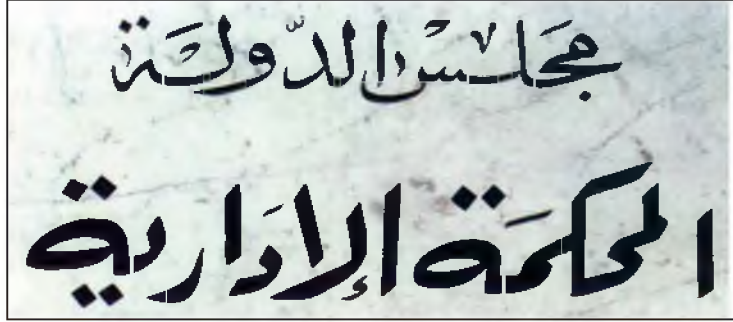 مجلس الدّولة
المحكمَة الإدَارية